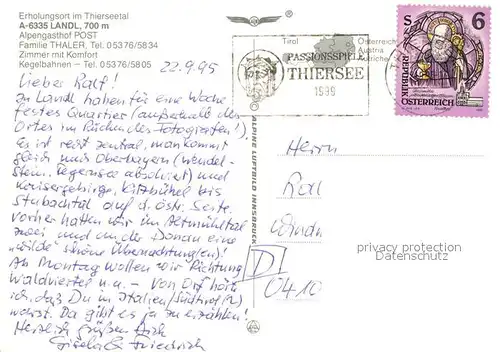 Erholungsort im Thierseetal
A-6335 LANDL, 700 m
Alpengasthof POST
Familie THALER, Tel. 05376/5834
Zimmer mit Komfort
Kegelbahnen – Tel. 05376/5805
22.9.95
Lieber Ralf!
In Landl haben für eine Woche
festes Quartier (außerhalb des
Ortes im Rücken des Fotografen!),
es ist recht zentral, man kommt
gleich nach Oberbayern (Wendel-
stein, Tegernsee absolviert) und
Kaisergebirge, Kitzbühel bis
Stubachtal auf d. östr. Seite.
Vorher hatten wir im Altmühltal
zwei und an der Donau eine
"wilde" schöne Übernachtung(en)!
Am Montag wollen wir Richtung
Waldviertel u.a. – Von Dorf hört
ich, daß Du in Italien/Südtirol (?)
warst. Da gibt es ja zu erzählen!
Herzlich grüßen Dich
Gisela & Friedrich
ALPINE LUFTBILD INNSBRUCK
Tirol
Österreich
Austria
PASSIONSSPIELE
THIERSEE
1999
S 6
REPUBLIK
ÖSTERREICH
Herrn
D
privacy protection
Datenschutz